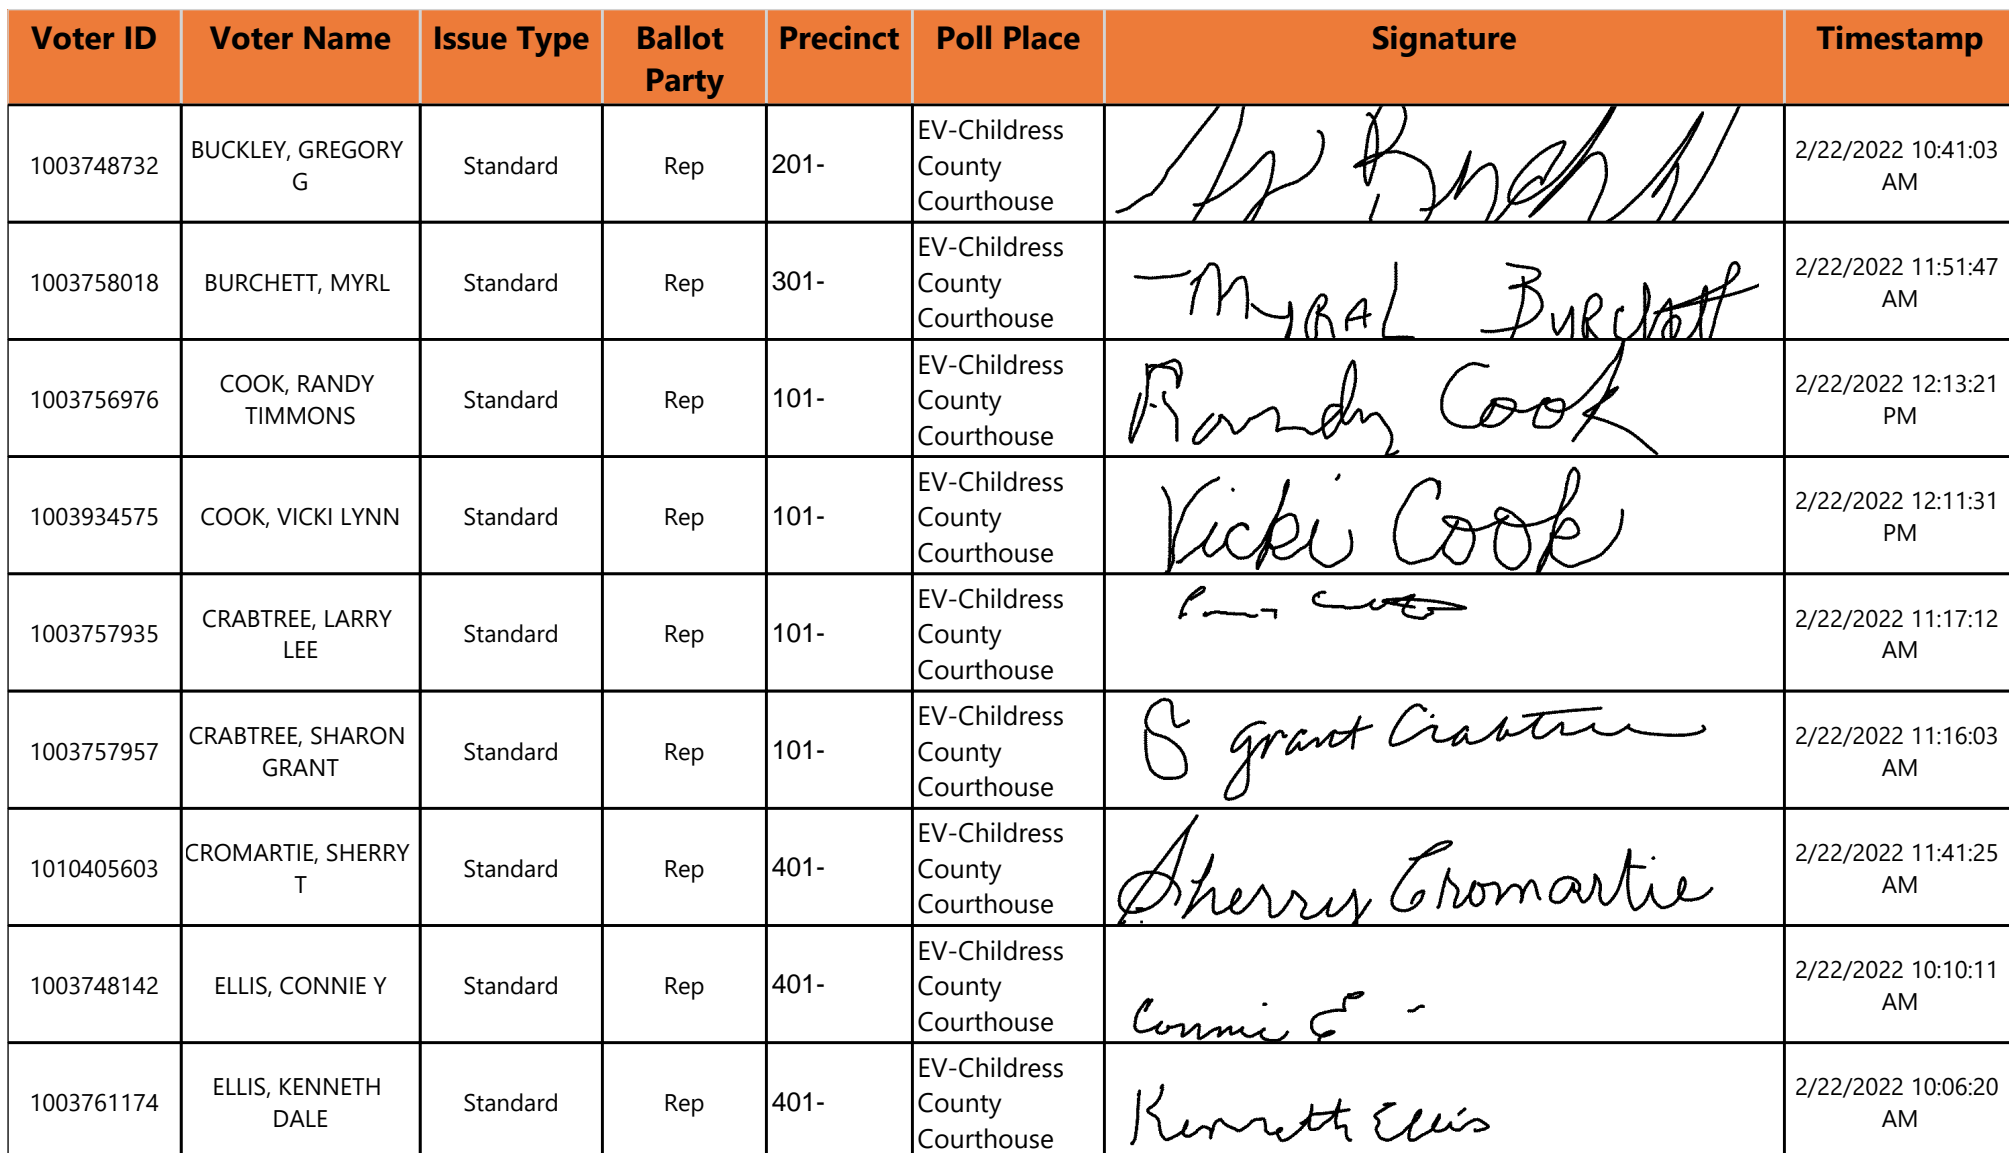 Voter ID Voter Name Issue Type Ballot Party Precinct Poll Place Signature Timestamp
1003748732 BUCKLEY, GREGORY G Standard Rep 201- EV-Childress County Courthouse 2/22/2022 10:41:03 AM
1003758018 BURCHETT, MYRL Standard Rep 301- EV-Childress County Courthouse MYRAL BURCHETT 2/22/2022 11:51:47 AM
1003756976 COOK, RANDY TIMMONS Standard Rep 101- EV-Childress County Courthouse Randy Cook 2/22/2022 12:13:21 PM
1003934575 COOK, VICKI LYNN Standard Rep 101- EV-Childress County Courthouse Vicki Cook 2/22/2022 12:11:31 PM
1003757935 CRABTREE, LARRY LEE Standard Rep 101- EV-Childress County Courthouse 2/22/2022 11:17:12 AM
1003757957 CRABTREE, SHARON GRANT Standard Rep 101- EV-Childress County Courthouse S Grant Crabtree 2/22/2022 11:16:03 AM
1010405603 CROMARTIE, SHERRY T Standard Rep 401- EV-Childress County Courthouse Sherry Cromartie 2/22/2022 11:41:25 AM
1003748142 ELLIS, CONNIE Y Standard Rep 401- EV-Childress County Courthouse Connie E 2/22/2022 10:10:11 AM
1003761174 ELLIS, KENNETH DALE Standard Rep 401- EV-Childress County Courthouse Kenneth Ellis 2/22/2022 10:06:20 AM